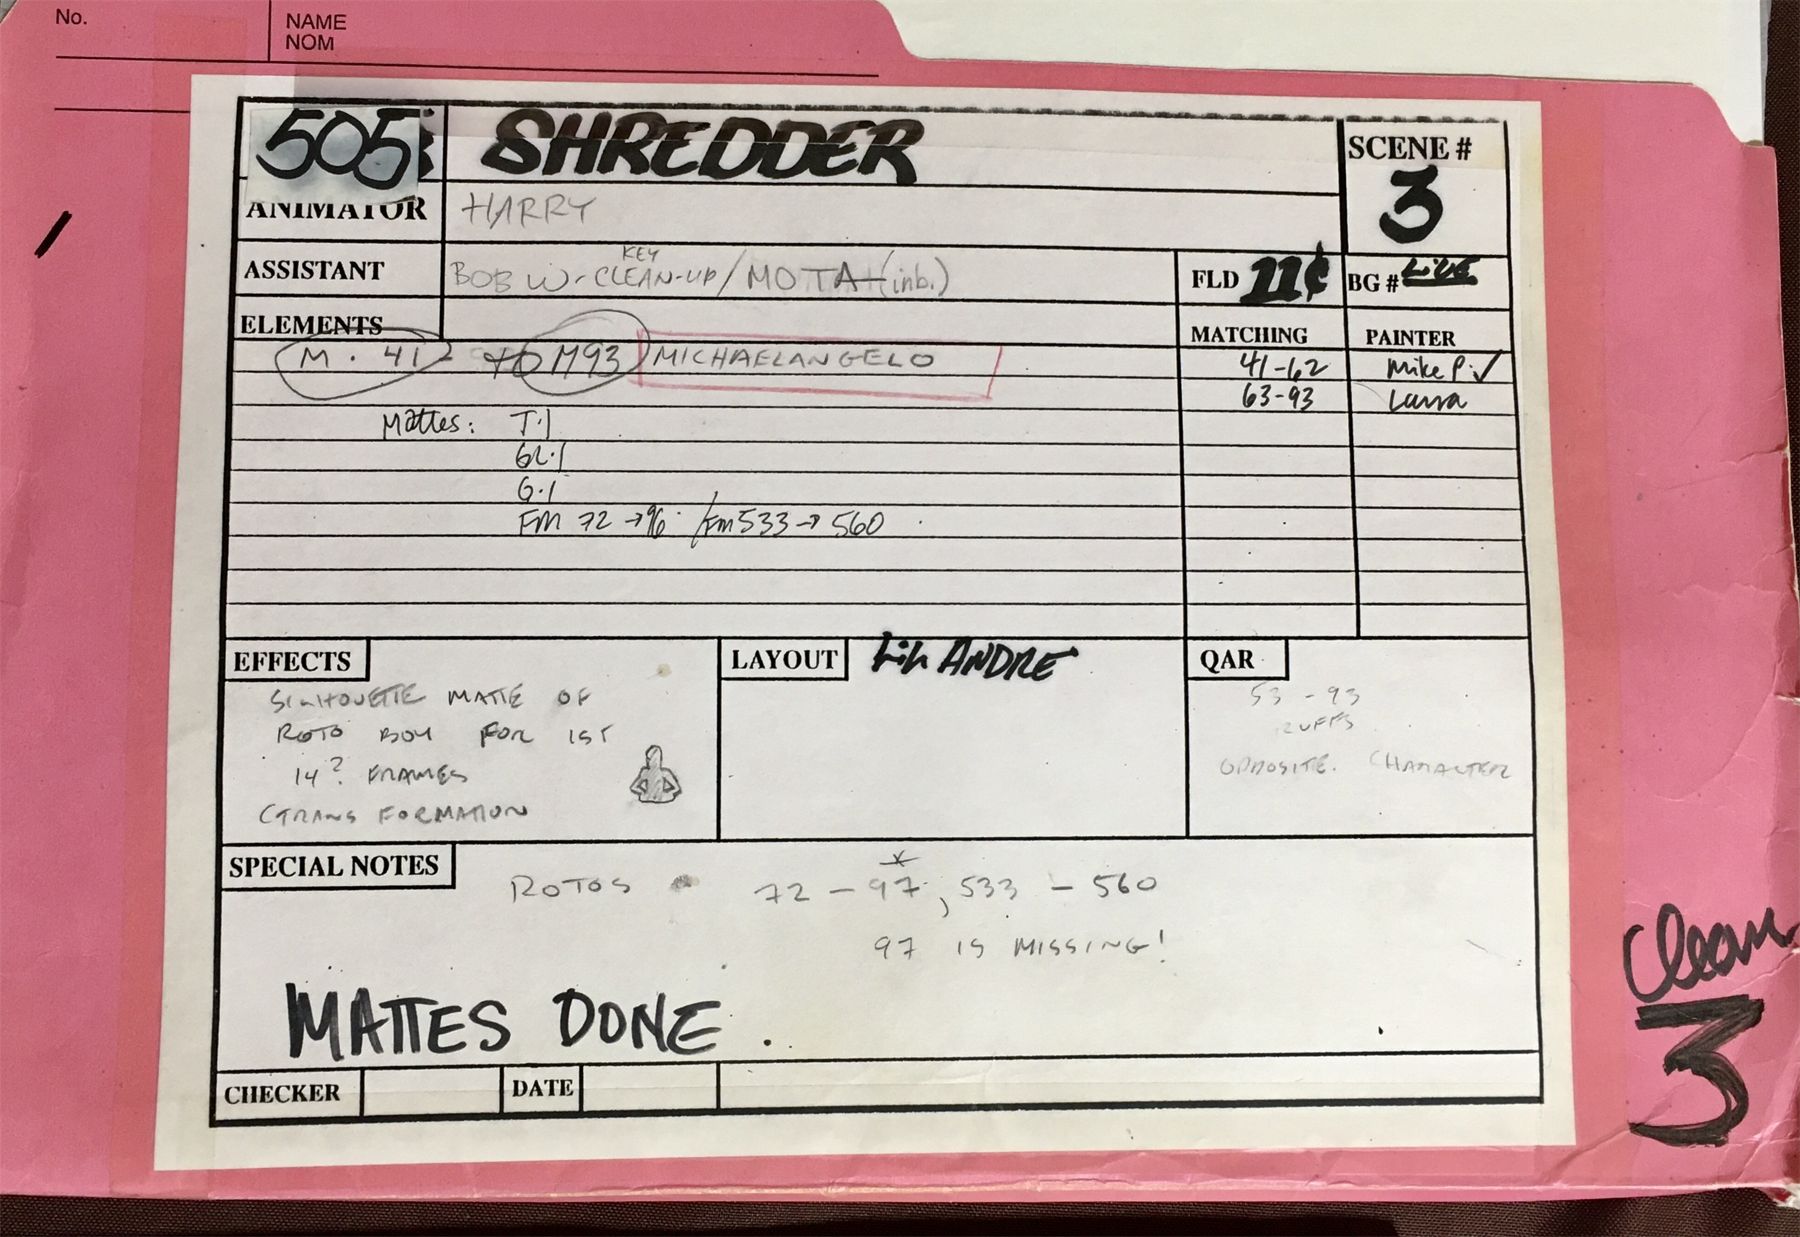 No.
NAME
NOM
505 SHREDDER
SCENE #
3
ANIMATOR HARRY
ASSISTANT BOB W - KEY CLEAN-UP / MOTA (inb.)
FLD 11¢
BG # LIVE
ELEMENTS
MATCHING
PAINTER
M. 41 - to M93 MICHAELANGELO
41-62 Mike P. ✓
63-93 Laura
Mattes: T.1
GL.1
G.1
FM 72 → 96 / FM 533 → 560
EFFECTS
SILHOUETTE MATTE OF
ROTO BOY FOR 1ST
14? FRAMES
(TRANSFORMATION
LAYOUT LiL ANDRE
QAR
53 - 93
RUFFS
OPPOSITE. CHARACTER
SPECIAL NOTES
ROTOS 72 - 97, 533 - 560
97 IS MISSING!
MATTES DONE.
CHECKER
DATE
Clean
3